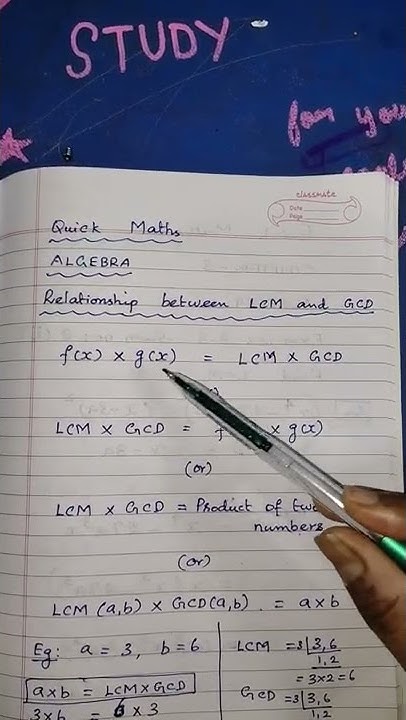 STUDY
for you
classmate
Date
Page
Quick Maths
ALGEBRA
Relationship between LCM and GCD
f(x) x g(x) = LCM x GCD
LCM x GCD = f x g(x)
(or)
LCM x GCD = Product of two
numbers
(or)
LCM (a,b) x GCD(a,b) = a x b
Eg: a = 3, b = 6
a x b = LCM x GCD
3 x b = 6 x 3
LCM = 3 | 3, 6
1, 2
= 3 x 2 = 6
GCD = 3 | 3, 6
1, 2